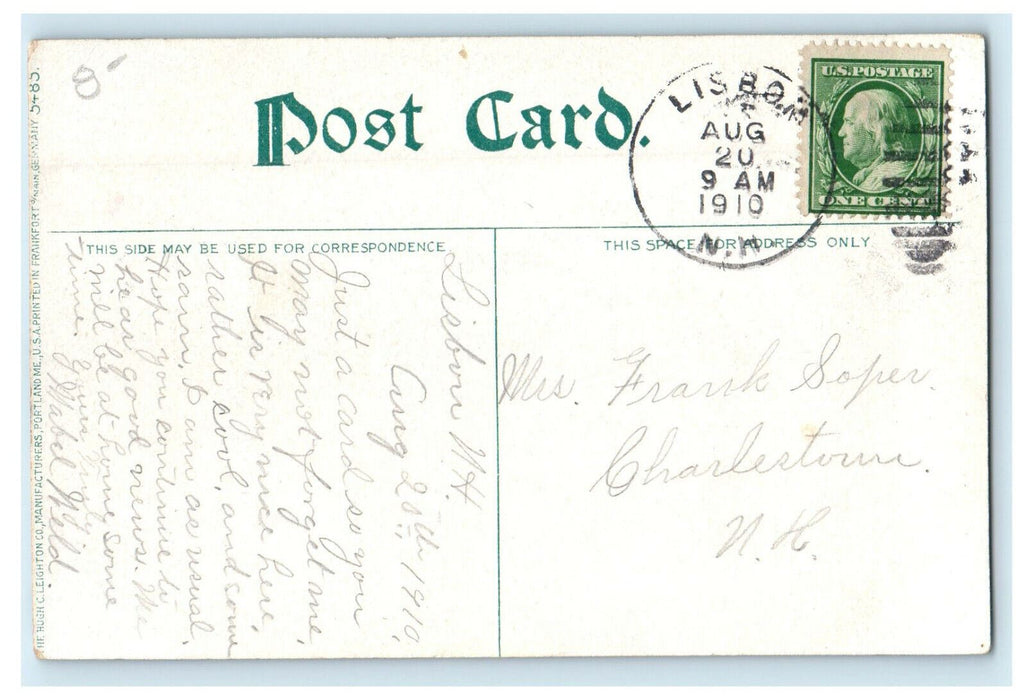 Post Card.
LISBON
AUG
20
9 AM
1910
N.H.
U.S. POSTAGE
ONE CENT
THIS SIDE MAY BE USED FOR CORRESPONDENCE.
THIS SPACE FOR ADDRESS ONLY.
Lisbon N.H.
Aug 20th, 1910,
Just a card so you
may not forget me,
It is very nice here,
rather cool, and some
rain, I am as usual,
Hope you continue to
hear good news. We
will be at home some
time. Yours Truly
Mabel Weld.
Mrs. Frank Soper.
Charlestown.
N.H.
HUGH C. LEIGHTON CO., MANUFACTURERS, PORTLAND, ME., U.S.A. PRINTED IN FRANKFORT o/MAIN, GERMANY 5485.